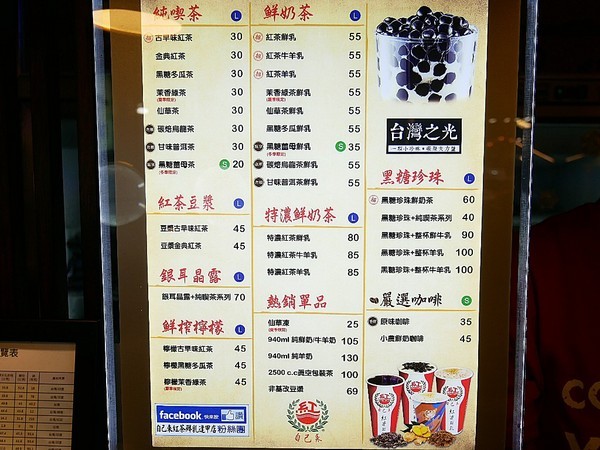 純喫茶 L
古早味紅茶 30
金典紅茶 30
黑糖冬瓜茶 30
茉香綠茶 30
仙草茶 30
碳焙烏龍茶 30
甘味普洱茶 30
黑糖薑母茶 S 20
紅茶豆漿 L
豆漿古早味紅茶 45
豆漿金典紅茶 45
銀耳晶露 L
銀耳晶露+純喫茶系列 70
鮮榨檸檬 L
檸檬古早味紅茶 45
檸檬黑糖冬瓜茶 45
檸檬茉香綠茶 45
facebook 快來按 讚
自己來紅茶拜乳逢甲店 粉絲團
鮮奶茶 L
紅茶鮮乳 55
紅茶牛羊乳 55
紅茶羊乳 55
茉香綠茶鮮乳 55
仙草茶鮮乳 55
黑糖冬瓜鮮乳 55
黑糖薑母鮮乳 S 35
碳焙烏龍茶鮮乳 55
甘味普洱茶鮮乳 55
特濃鮮奶茶 L
特濃紅茶鮮乳 80
特濃紅茶牛羊乳 85
特濃紅茶羊乳 85
熱銷單品
仙草凍 25
940ml 純鮮奶/牛羊奶 105
940ml 純羊奶 130
2500 c.c真空包裝茶 100
非基改豆漿 69
紅
自己來
台灣之光
黑糖珍珠 L
黑糖珍珠鮮奶茶 60
黑糖珍珠+純喫茶系列 40
黑糖珍珠+整杯鮮牛乳 90
黑糖珍珠+整杯羊乳 100
黑糖珍珠+整杯牛羊乳 100
嚴選咖啡 S
原味咖啡 35
小農鮮奶咖啡 45
覽表